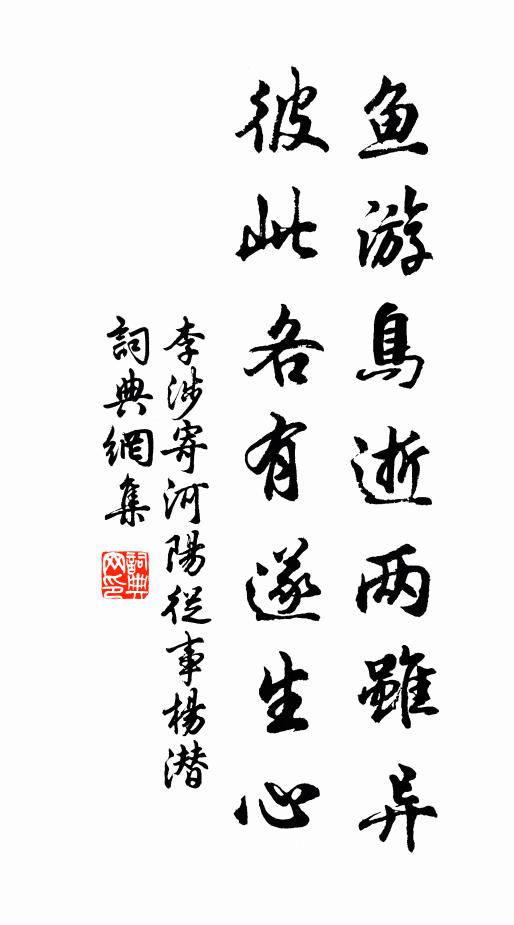 鱼游鳥逝两雖异
彼此各有遂生心
李涉寄河陽從事楊潜
詞典網集
詞典网印